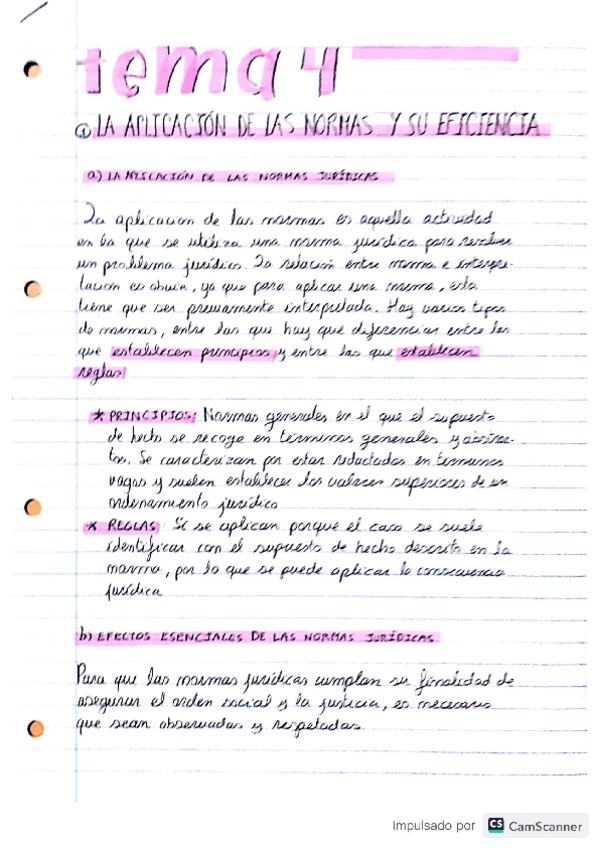 tema 4
① LA APLICACIÓN DE LAS NORMAS Y SU EFICIENCIA
a) LA APLICACIÓN DE LAS NORMAS JURÍDICAS
La aplicacion de las normas es aquella actividad
en la que se utiliza una norma jurídica para resolver
un problema jurídico. La relación entre norma e interpre-
tación es obvia, ya que para aplicar una norma, esta
tiene que ser previamente interpretada. Hay varios tipos
de normas, entre las que hay que diferenciar entre las
que establecen principios y entre las que establecen
reglas
* PRINCIPIOS: Normas generales en el que el supuesto
de hecho se recoge en términos generales y abstrac-
tos. Se caracterizan por estar redactados en terminos
vagos y suelen establecer los valores superiores de un
ordenamiento jurídico
* REGLAS: Si se aplican porque el caso se suele
identificar con el supuesto de hecho descrito en la
norma, por lo que se puede aplicar la consecuencia
jurídica
b) EFECTOS ESENCIALES DE LAS NORMAS JURÍDICAS
Para que las normas jurídicas cumplan su finalidad de
asegurar el orden social y la justicia, es necesario
que sean observadas y respetadas
Impulsado por CS CamScanner